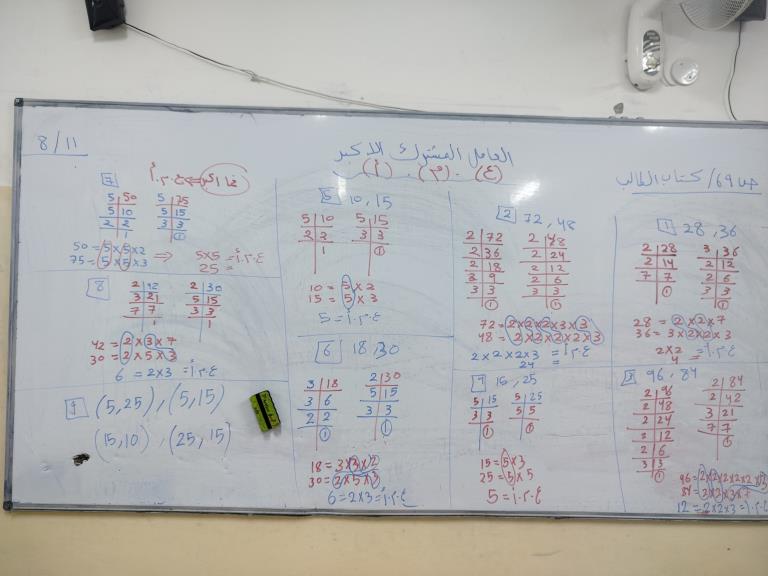 8/11
العامل المشترك الأكبر
(ع.م.أ)
ص69/كتاب الطالب
1 28, 36
2 | 28
2 | 14
7 | 7
1
3 | 36
2 | 12
2 | 6
3 | 3
1
28 = 2×2×7
36 = 3×2×2×3
ع.م.أ = 2×2
= 4
2 72, 48
2 | 72
2 | 36
2 | 18
3 | 9
3 | 3
1
2 | 48
2 | 24
2 | 12
2 | 6
3 | 3
1
72 = 2×2×2×3×3
48 = 2×2×2×2×3
ع.م.أ = 2×2×2×3
= 24
3 96, 84
2 | 96
2 | 48
2 | 24
2 | 12
2 | 6
3 | 3
1
2 | 84
2 | 42
3 | 21
7 | 7
1
96 = 2×2×2×2×2×3
84 = 2×2×3×7
ع.م.أ = 2×2×3 = 12
4 15, 25
5 | 15
3 | 3
1
5 | 25
5 | 5
1
15 = 5×3
25 = 5×5
ع.م.أ = 5
5 10, 15
5 | 10
2 | 2
1
5 | 15
3 | 3
1
10 = 5×2
15 = 5×3
ع.م.أ = 5
6 18, 30
3 | 18
3 | 6
2 | 2
1
2 | 30
5 | 15
3 | 3
1
18 = 3×3×2
30 = 2×5×3
ع.م.أ = 2×3 = 6
ع.م.أ
5 | 50
5 | 10
2 | 2
1
5 | 75
5 | 15
3 | 3
1
50 = 5×5×2
75 = 5×5×3
ع.م.أ = 5×5
= 25
8
2 | 42
3 | 21
7 | 7
1
2 | 30
5 | 15
3 | 3
1
42 = 2×3×7
30 = 2×5×3
ع.م.أ = 2×3 = 6
(5,25), (5,15)
(15,10), (25,15)